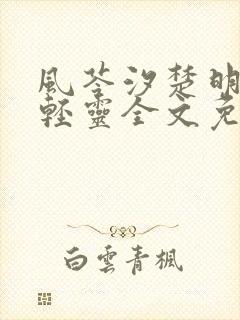 風苓汐楚明
輕靈全文免
白雲青楓